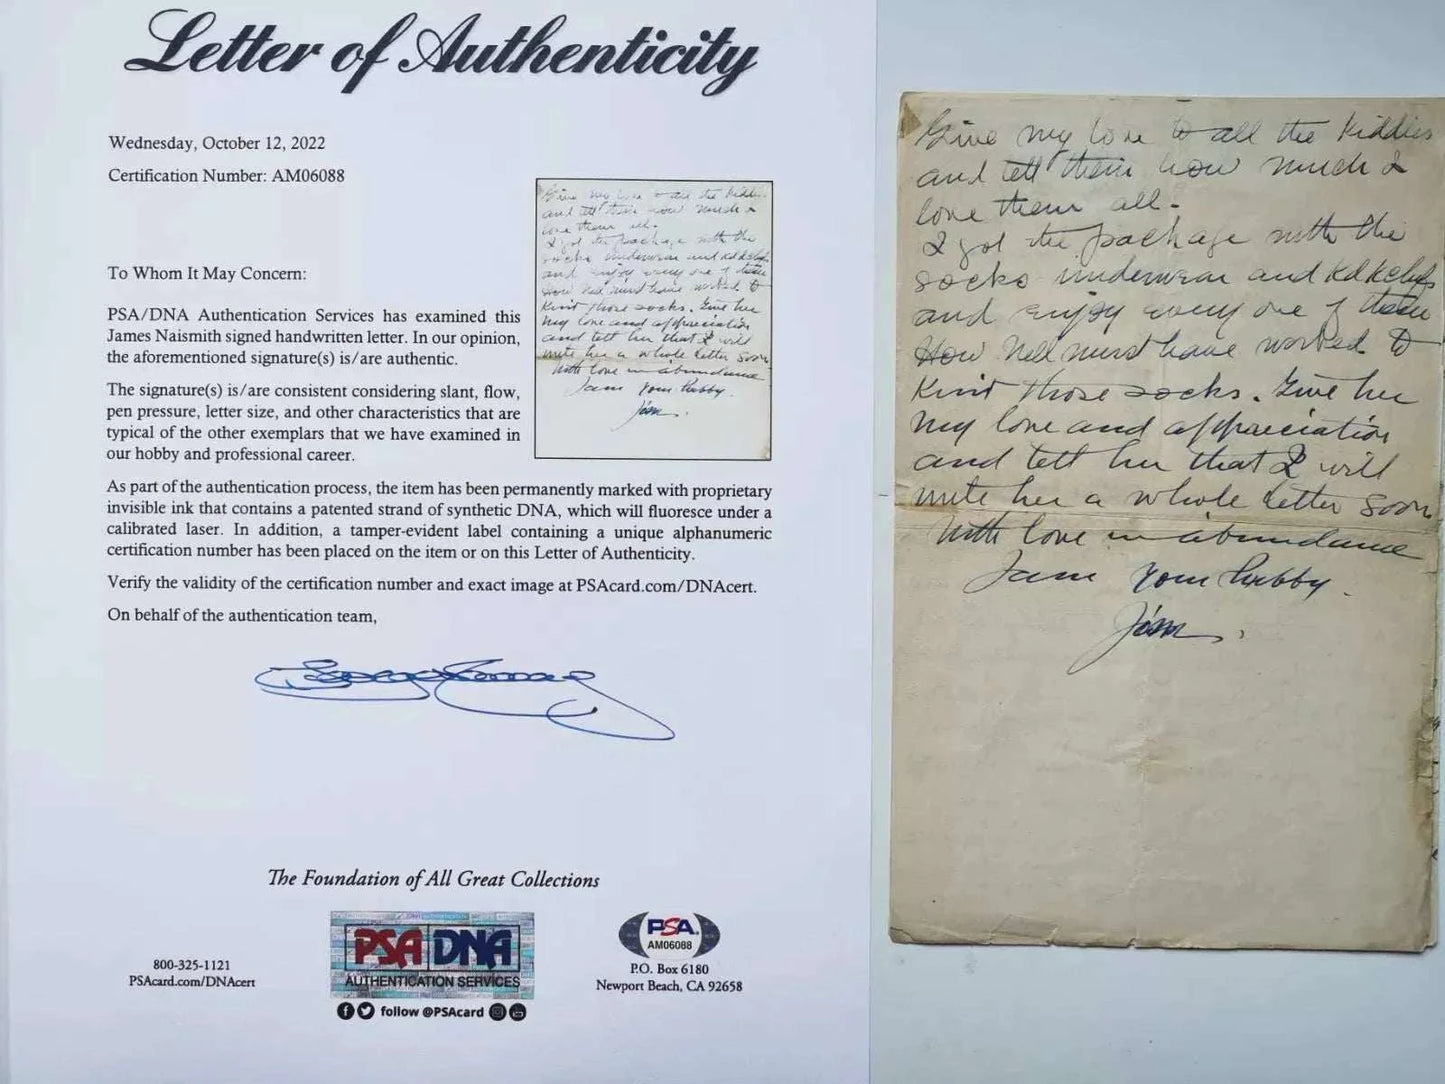 Letter of Authenticity
Wednesday, October 12, 2022
Certification Number: AM06088
To Whom It May Concern:
PSA/DNA Authentication Services has examined this
James Naismith signed handwritten letter. In our opinion,
the aforementioned signature(s) is/are authentic.
The signature(s) is/are consistent considering slant, flow,
pen pressure, letter size, and other characteristics that are
typical of the other exemplars that we have examined in
our hobby and professional career.
As part of the authentication process, the item has been permanently marked with proprietary
invisible ink that contains a patented strand of synthetic DNA, which will fluoresce under a
calibrated laser. In addition, a tamper-evident label containing a unique alphanumeric
certification number has been placed on the item or on this Letter of Authenticity.
Verify the validity of the certification number and exact image at PSAcard.com/DNAcert.
On behalf of the authentication team,
The Foundation of All Great Collections
800-325-1121
PSAcard.com/DNAcert
PSA DNA
AUTHENTICATION SERVICES
follow @PSAcard
PSA
AM06088
P.O. Box 6180
Newport Beach, CA 92658
Give my love to all the kiddies
and tell them how much I
love them all.
I got the package with the
socks underwear and
and enjoy every one of them
How Nell must have worked to
Knit those socks. Give her
my love and appreciation
and tell her that I will
write her a whole letter soon
With love in abundance
I am your hubby.
Jim.
Give my love to all the kiddies
and tell them how much I
love them all.
I got the package with the
socks underwear and
and enjoy every one of them
How Nell must have worked to
Knit those socks. Give her
my love and appreciation
and tell her that I will
write her a whole letter soon
With love in abundance
I am your hubby.
Jim.